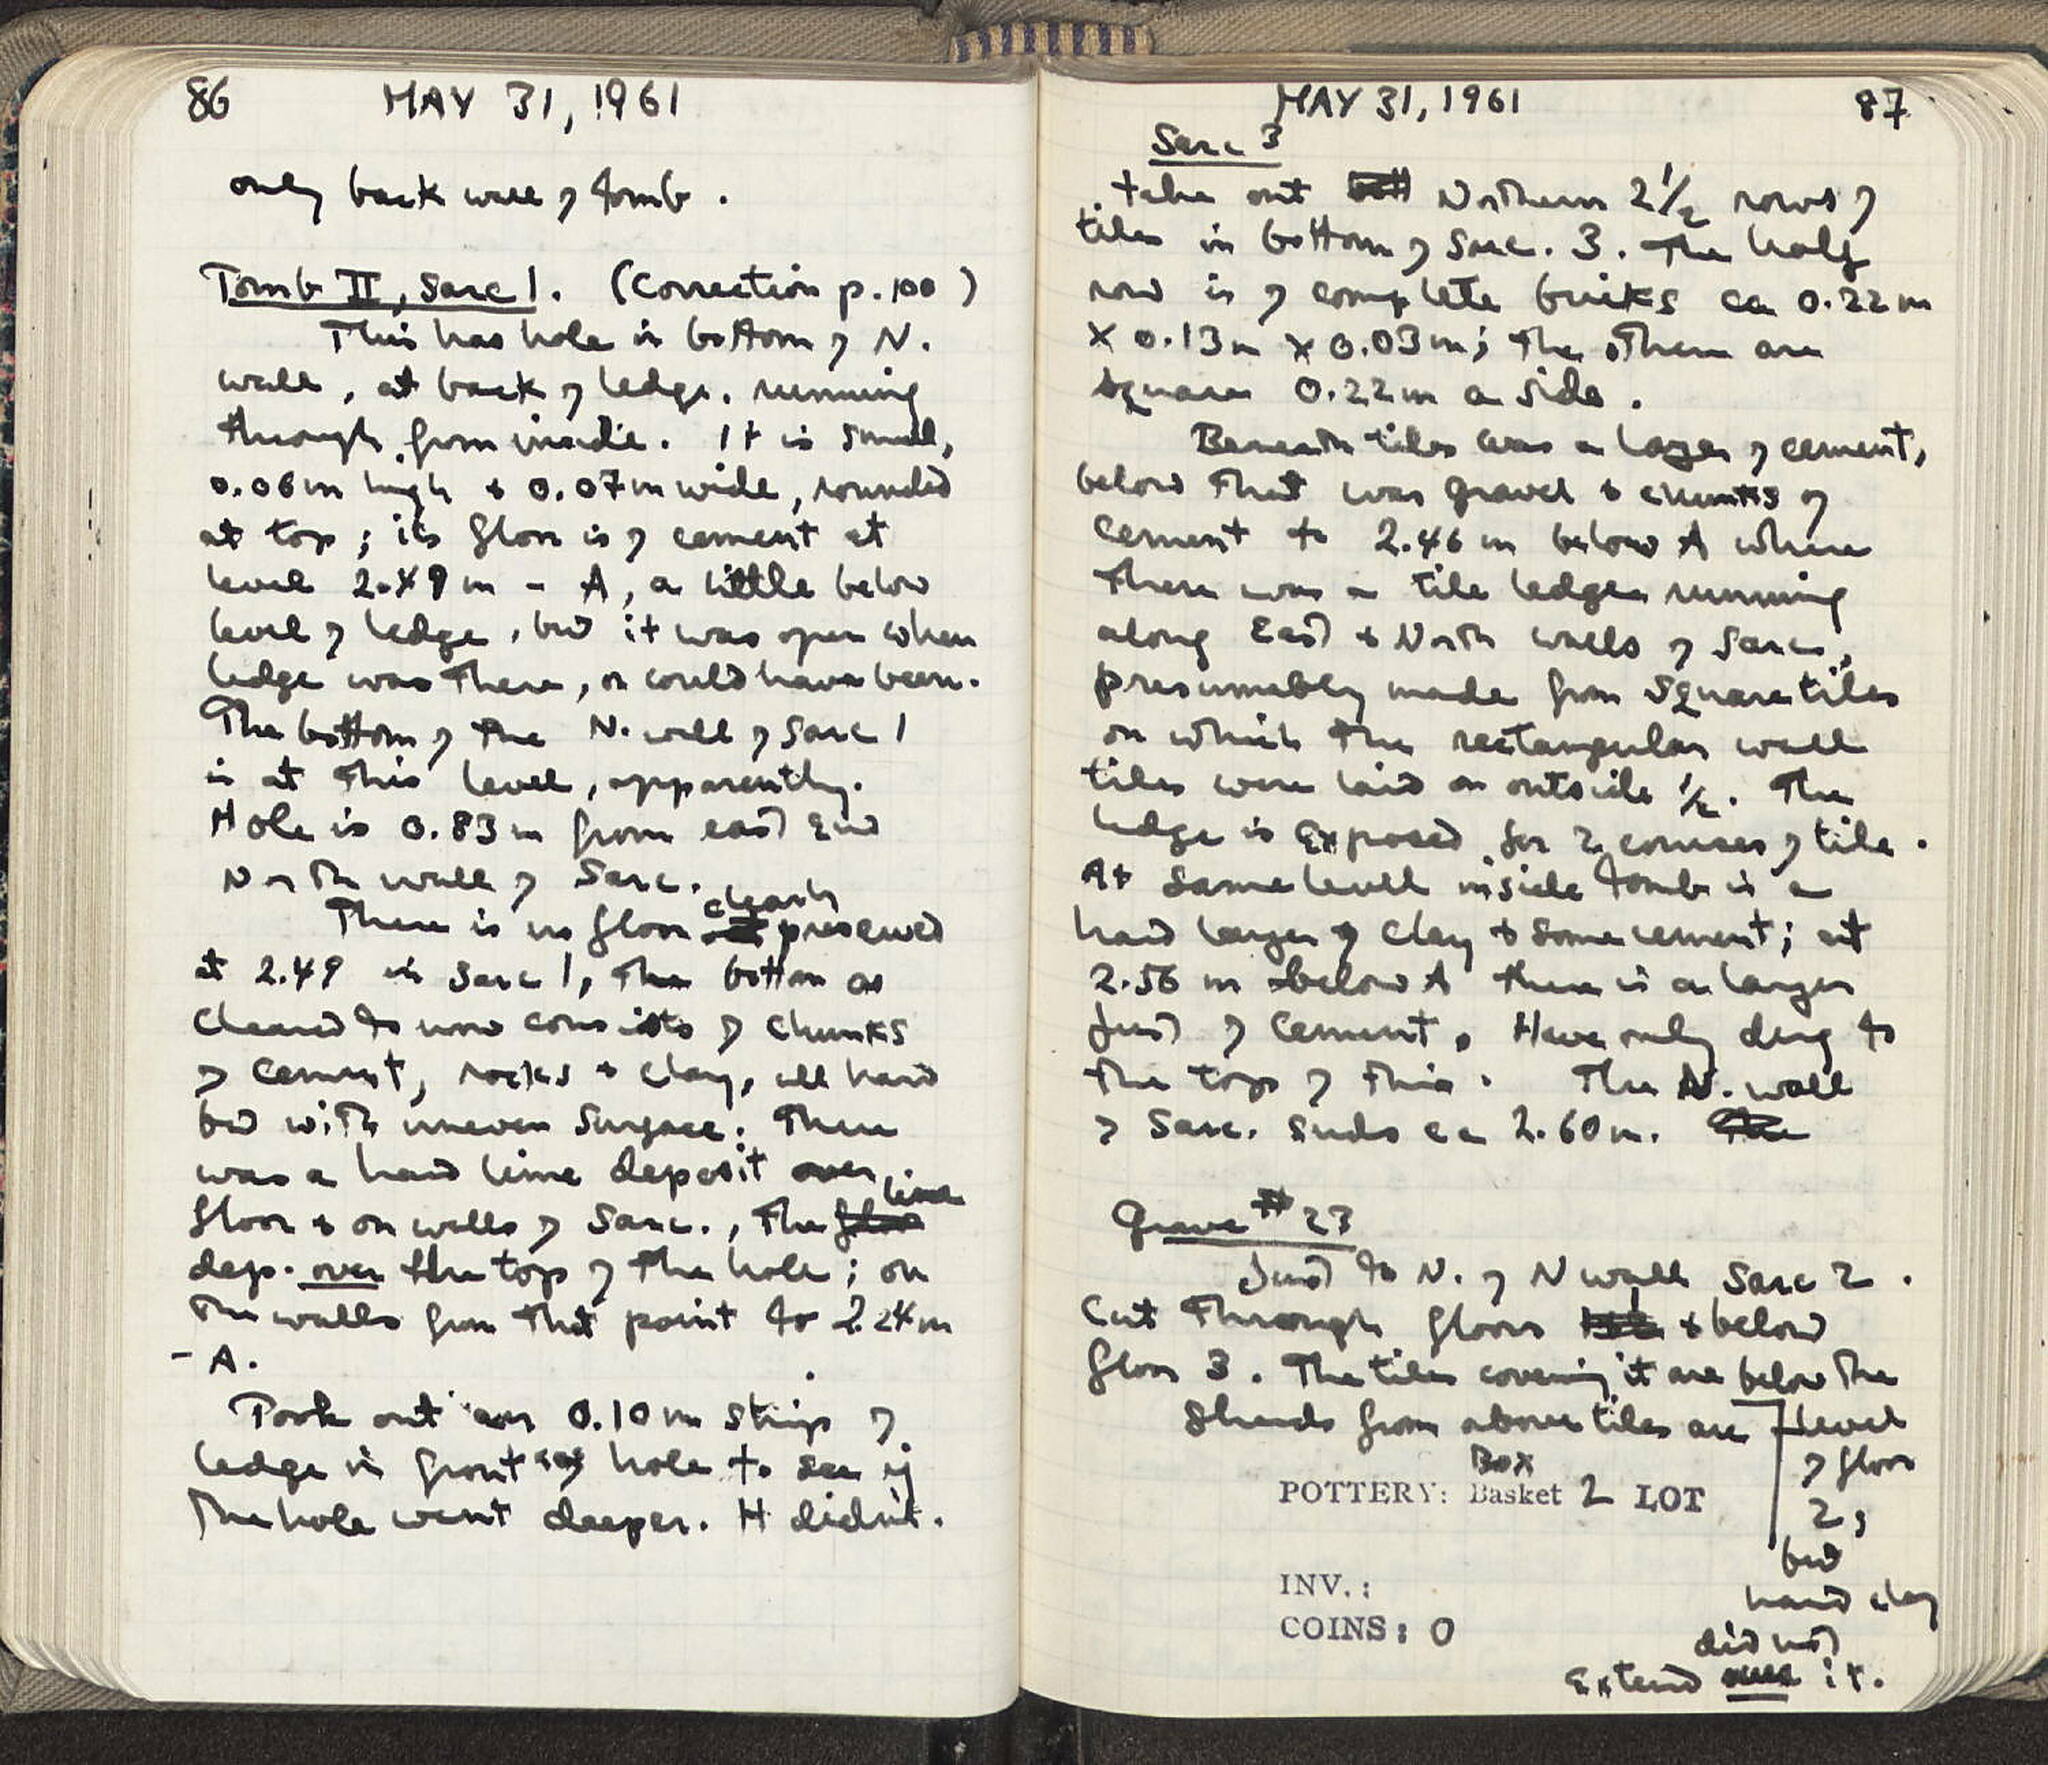 86 MAY 31, 1961
only back wall of tomb.
Tomb II, Sarc 1. (Correction p. 100)
This has hole in bottom of N.
wall, at back of ledge, running
through from inside. It is small,
0.06 m high & 0.07 m wide, rounded
at top; its floor is of cement at
level 2.49 m - A, a little below
level of ledge, but it was open when
ledge was there, or could have been.
The bottom of the N. wall of Sarc 1
is at this level, apparently.
Hole is 0.83 m from east end
North wall of Sarc.
clearly
There is no floor preserved
at 2.49 in Sarc 1, the bottom as
cleared to now consists of chunks
of cement, rocks & clay, all hard
but with uneven surface. There
was a hard lime deposit over
lime
floor & on walls of Sarc., the
dep. over the top of the hole; on
the walls from that point to 2.24 m
- A.
Took out 0.10 m strip of
ledge in front of hole to see if
the hole went deeper. It didn't.
MAY 31, 1961 87
Sarc 3
take out Northern 2 1/2 rows of
tiles in bottom of Sarc. 3. The half
row is of complete bricks ca 0.22 m
x 0.13 m x 0.03 m; the others are
square 0.22 m a side.
Beneath tiles was a layer of cement,
below that was gravel & chunks of
cement to 2.46 m below A where
there was a tile ledge running
along East & North walls of Sarc.,
presumably made from square tiles
on which the rectangular wall
tiles were laid on outside 1/2. The
ledge is exposed for 2 courses of tile.
At same level inside tomb is a
hard layer of clay & some cement; at
2.56 m below A there is a layer
just of cement. Have only dug to
the top of this. The N. wall
of Sarc. ends ca 2.60 m. The
Grave # 23
Just to N. of N wall Sarc 2.
Cut through floors & below
floor 3. The tiles covering it are below the
level
of floor
2,
but
hard clay
did not
extend over it.
Sherds from above tiles are
Box
POTTERY: Basket 2 LOT
INV.:
COINS: 0